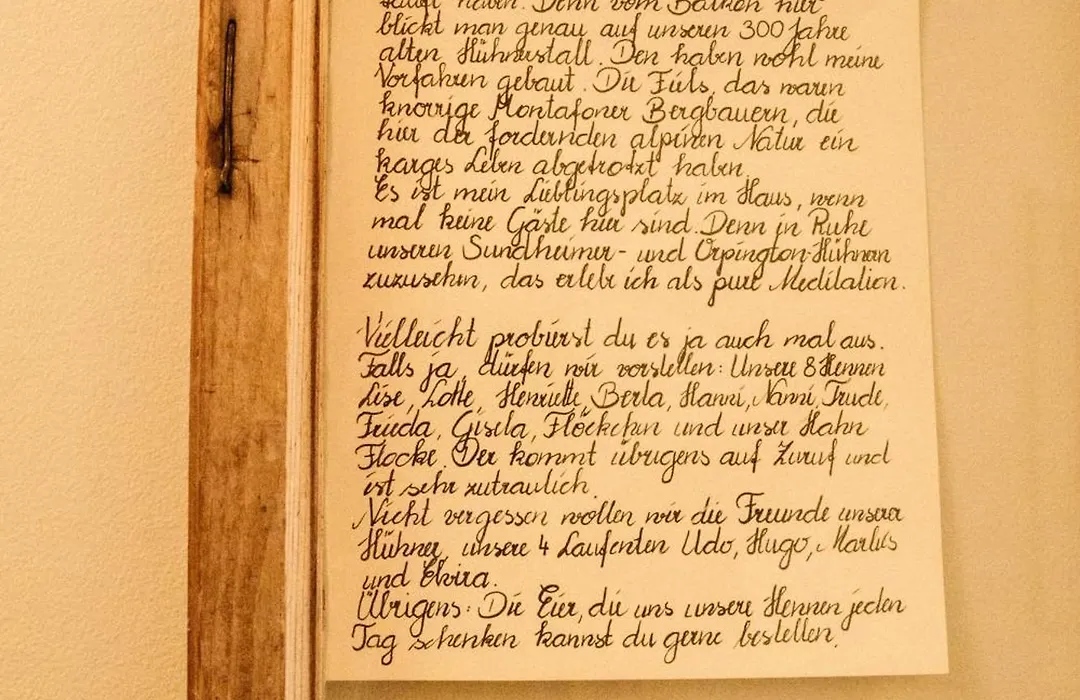 haben. Denn vom Balkon hier
blickt man genau auf unseren 300 Jahre
alten Hühnerstall. Den haben wohl meine
Vorfahren gebaut. Die Fiels, das waren
knorrige Montafoner Bergbauern, die
hier der fordernden alpinen Natur ein
karges Leben abgetrotzt haben.
Es ist mein Lieblingsplatz im Haus, wenn
mal keine Gäste hier sind. Denn in Ruhe
unseren Sundheimer- und Orpington-Hühnern
zuzusehen, das erlebe ich als pure Meditation.
Vielleicht probierst du es ja auch mal aus.
Falls ja, dürfen wir vorstellen: Unsere 8 Hennen
Lise, Lotte, Henriette, Berta, Hanni, Nanni, Trude,
Frieda, Gisela, Flöckchen und unser Hahn
Flocke. Der kommt übrigens auf Zuruf und
ist sehr zutraulich.
Nicht vergessen wollen wir die Freunde unserer
Hühner, unsere 4 Laufenten Udo, Hugo, Markus
und Elvira.
Übrigens: Die Eier, die uns unsere Hennen jeden
Tag schenken kannst du gerne bestellen.